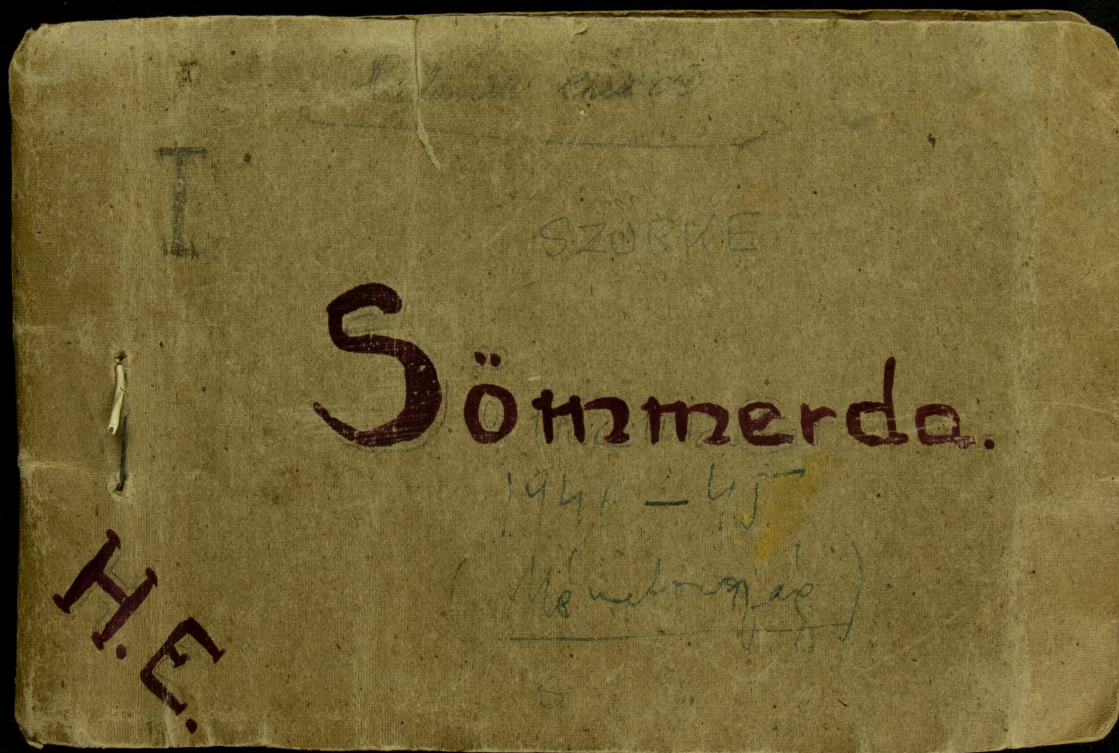 I
SZÜRKE
Sömmerda.
(Németország)
H.E.